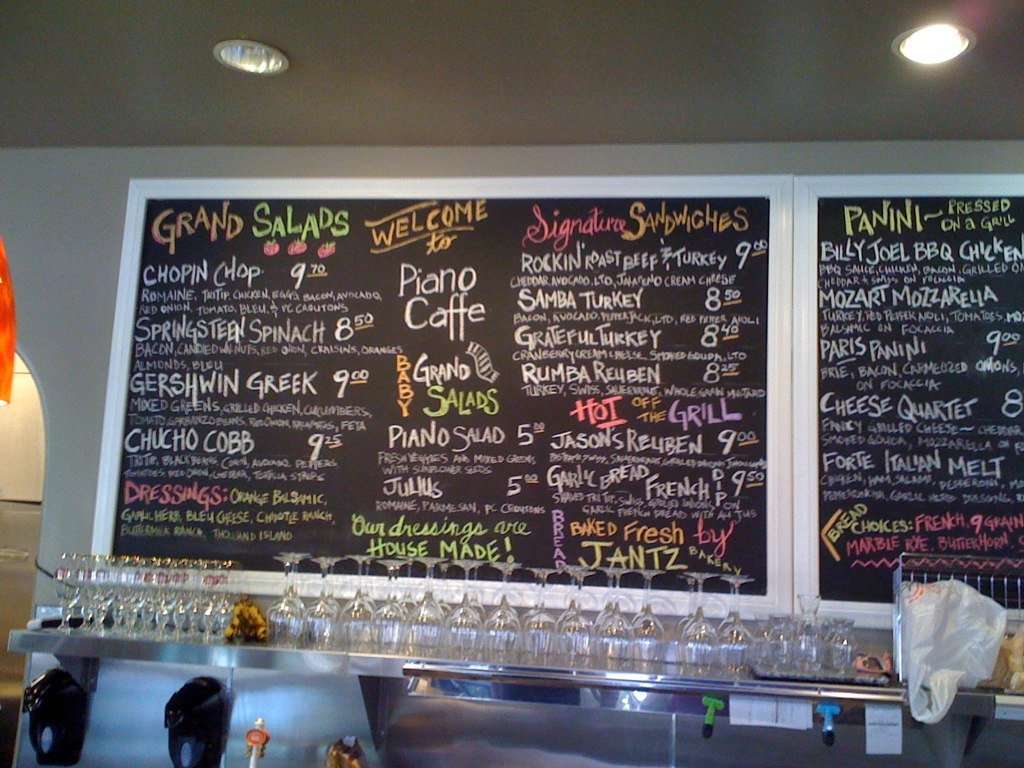 GRAND SALADS
CHOPIN CHOP 9.70
ROMAINE, TRITIP, CHICKEN, EGGS, BACON, AVOCADO,
RED ONION, TOMATO, BLEU & PC CROUTONS
SPRINGSTEEN SPINACH 8.50
BACON, CANDIED WALNUTS, RED ONION, CRAISINS, ORANGES
ALMONDS, BLEU
GERSHWIN GREEK 9.00
MIXED GREENS, GRILLED CHICKEN, CUCUMBERS,
TOMATO, GARBANZO BEANS, RED ONION, FETA
CHUCHO COBB 9.25
TRITIP, BLACK BEANS, CORN, AVOCADO, PEPPERS
TOMATOES, RED ONION, CHEDDAR, TORTILLA STRIPS
DRESSINGS: ORANGE BALSAMIC,
GARLIC HERB, BLEU CHEESE, CHIPOTLE RANCH,
BUTTERMILK RANCH, THOUSAND ISLAND
WELCOME
to
Piano
Caffe
BABY GRAND
SALADS
PIANO SALAD 5.00
FRESH VEGGIES AND MIXED GREENS
WITH SUNFLOWER SEEDS
JULIUS 5.00
ROMAINE, PARMESAN, PC CROUTONS
Our dressings are
HOUSE MADE!
Signature SANDWICHES
ROCKIN' ROAST BEEF & TURKEY 9.00
CHEDDAR, AVOCADO, LTO, JALAPENO CREAM CHEESE
SAMBA TURKEY 8.50
BACON, AVOCADO, PEPPERJACK, LTO, RED PEPPER AIOLI
GRATEFUL TURKEY 8.40
CRANBERRY CREAM CHEESE, SMOKED GOUDA, LTO
RUMBA REUBEN 8.25
TURKEY, SWISS, SAUERKRAUT, WHOLE GRAIN MUSTARD
HOT OFF THE GRILL
JASON'S REUBEN 9.00
GARLIC BREAD FRENCH DIP 9.50
SHAVED TRITIP, SWISS, ONIONS, ON
GARLIC FRENCH BREAD WITH AU JUS
BREAD BAKED Fresh by
JANTZ BAKERY
PANINI~ PRESSED
ON A GRILL
BILLY JOEL BBQ CHICKEN
BBQ SAUCE, CHICKEN, BACON, GRILLED
CHEDDAR ON FOCACCIA
MOZART MOZZARELLA
TURKEY, RED PEPPER AIOLI, TOMATOES,
BALSAMIC ON FOCACCIA
PARIS PANINI 9.00
BRIE, BACON, CARMELIZED ONIONS,
ON FOCACCIA
CHEESE QUARTET 8
FANCY GRILLED CHEESE~ CHEDDAR,
SMOKED GOUDA, MOZZARELLA ON
FORTE ITALIAN MELT
CHICKEN, HAM, SALAMI, PEPPERONI,
PEPPERONCINI, GARLIC HERB DRESSING,
BREAD CHOICES: FRENCH, 9 GRAIN
MARBLE RYE, BUTTERHORN,